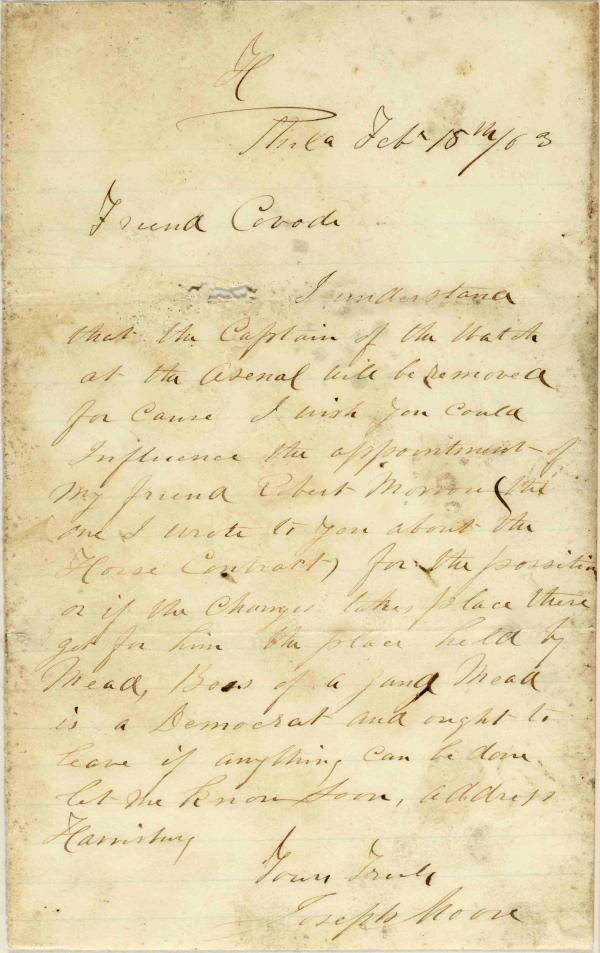 H
Phila Feb 18th/63
Friend Covode
I understand
that the Captain of the Watch
at the Asenal will be removed
for Cause I wish you could
Influence the appointment of
my friend Robert Morrow (the
one I wrote to you about the
Horse Contract) for the possition
or if the Changes takes place there
get for him the place held by
Mead, Boss of a gang Mead
is a Democrat and ought to
leave if anything can be done
let me know soon, address
Harrisburg
Yours Truly
Joseph Moore